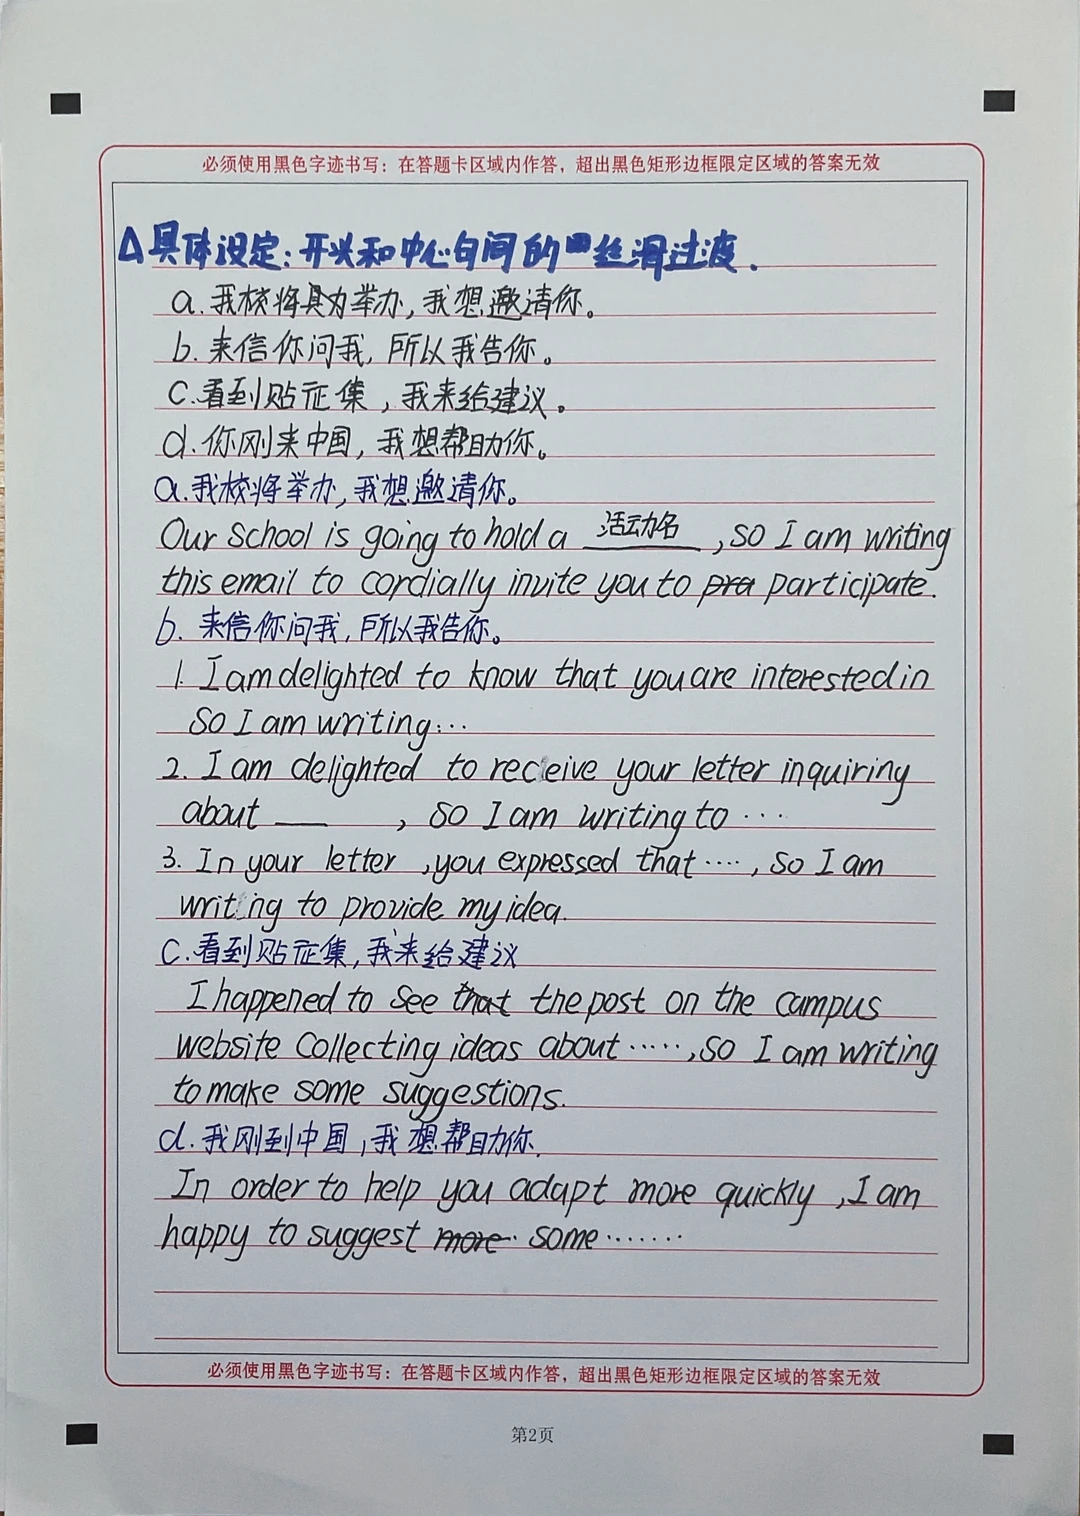 必须使用黑色字迹书写：在答题卡区域内作答，超出黑色矩形边框限定区域的答案无效
△具体设定：开头和中心句间的丝滑过渡.
a.我校将具为举办,我想邀请你。
b.来信你问我,所以我告你。
C.看到贴征集,我来给建议。
d.你刚来中国,我想帮助你。
a.我校将举办,我想邀请你。
Our School is going to hold a 活动名 , so I am writing
this email to cordially invite you to pra participate.
b.来信你问我,所以我告你。
1. I am delighted to know that you are interested in
So I am writing...
2. I am delighted to receive your letter inquiring
about ___ , so I am writing to ...
3. In your letter ,you expressed that...., so I am
writing to provide my idea.
C.看到贴征集,我来给建议
I happened to see that the post on the campus
website Collecting ideas about.....,so I am writing
to make some suggestions.
d.我刚到中国,我想帮助你.
In order to help you adapt more quickly ,I am
happy to suggest more some.......
必须使用黑色字迹书写：在答题卡区域内作答，超出黑色矩形边框限定区域的答案无效
第2页